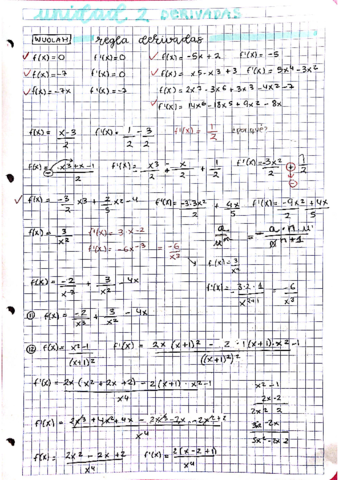 unidad 2 DERIVADAS
WUOLAH regla derivadas
✓ f(x)=0 f'(x)=0 ✓ f(x)=-5x+2 f'(x)=-5
✓ f(x)=-7 f'(x)=0 ✓ f(x)= x5-x3+3 f'(x)= 5x4-3x2
✓ f(x)=-7x f'(x)=-7 f(x)= 2x7-3x6+3x3-4x2-7
✓ f'(x)= 14x6-18x5+9x2-8x
f(x)= x-3/2 f'(x)= 1/2 - 3/2 f'(x)= 1/2 ¿por qué?
f(x)= -x3+x-1/2 f'(x)= -x3/2 + x/2 + 1/2 f'(x)= -3x2/2 + 1/2
✓ f(x)= -3/2 x3 + 2/5 x2 - 4 f'(x)= -3·3x2/2 + 4x/5 f'(x)= -9x2/2 + 4x/5
f(x)= 3/x2 f'(x)= 3·x-2
f'(x)= -6x-3 = -6/x3
f(x)= 3/x2
f(x)= -2/x3 + 3/x2 - 4x f'(x)= -3·2·1/x2+1 = -6/x3
⑪ f(x)= -2/x3 + 3/x2 - 4x
⑫ f(x)= x2-1/(x+1)2 f'(x)= 2x·(x+1)2 - 2·1(x+1)·x2-1/((x+1)2)2
f'(x)= 2x·(x2+2x+2) - 2(x+1)·x2-1/x4
f'(x)= 2x3+4x2+4x-2x3-2x-2x2+2/x4
f(x)= 2x2-2x+2/x4 f'(x)= 2(x-2+1)/x4
x2-1
2x-2